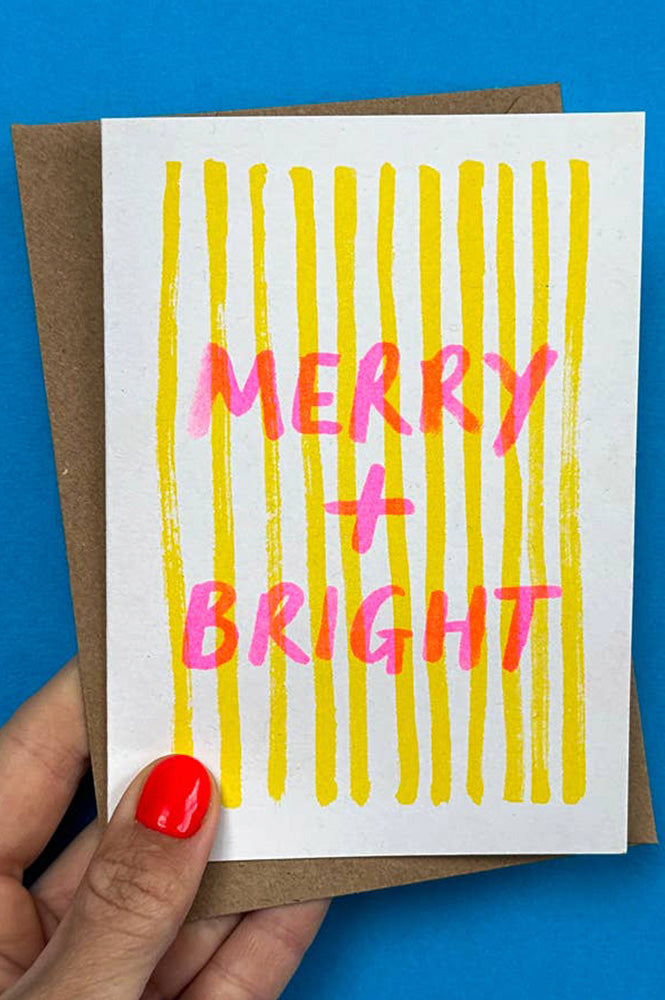 MERRY
+
BRIGHT